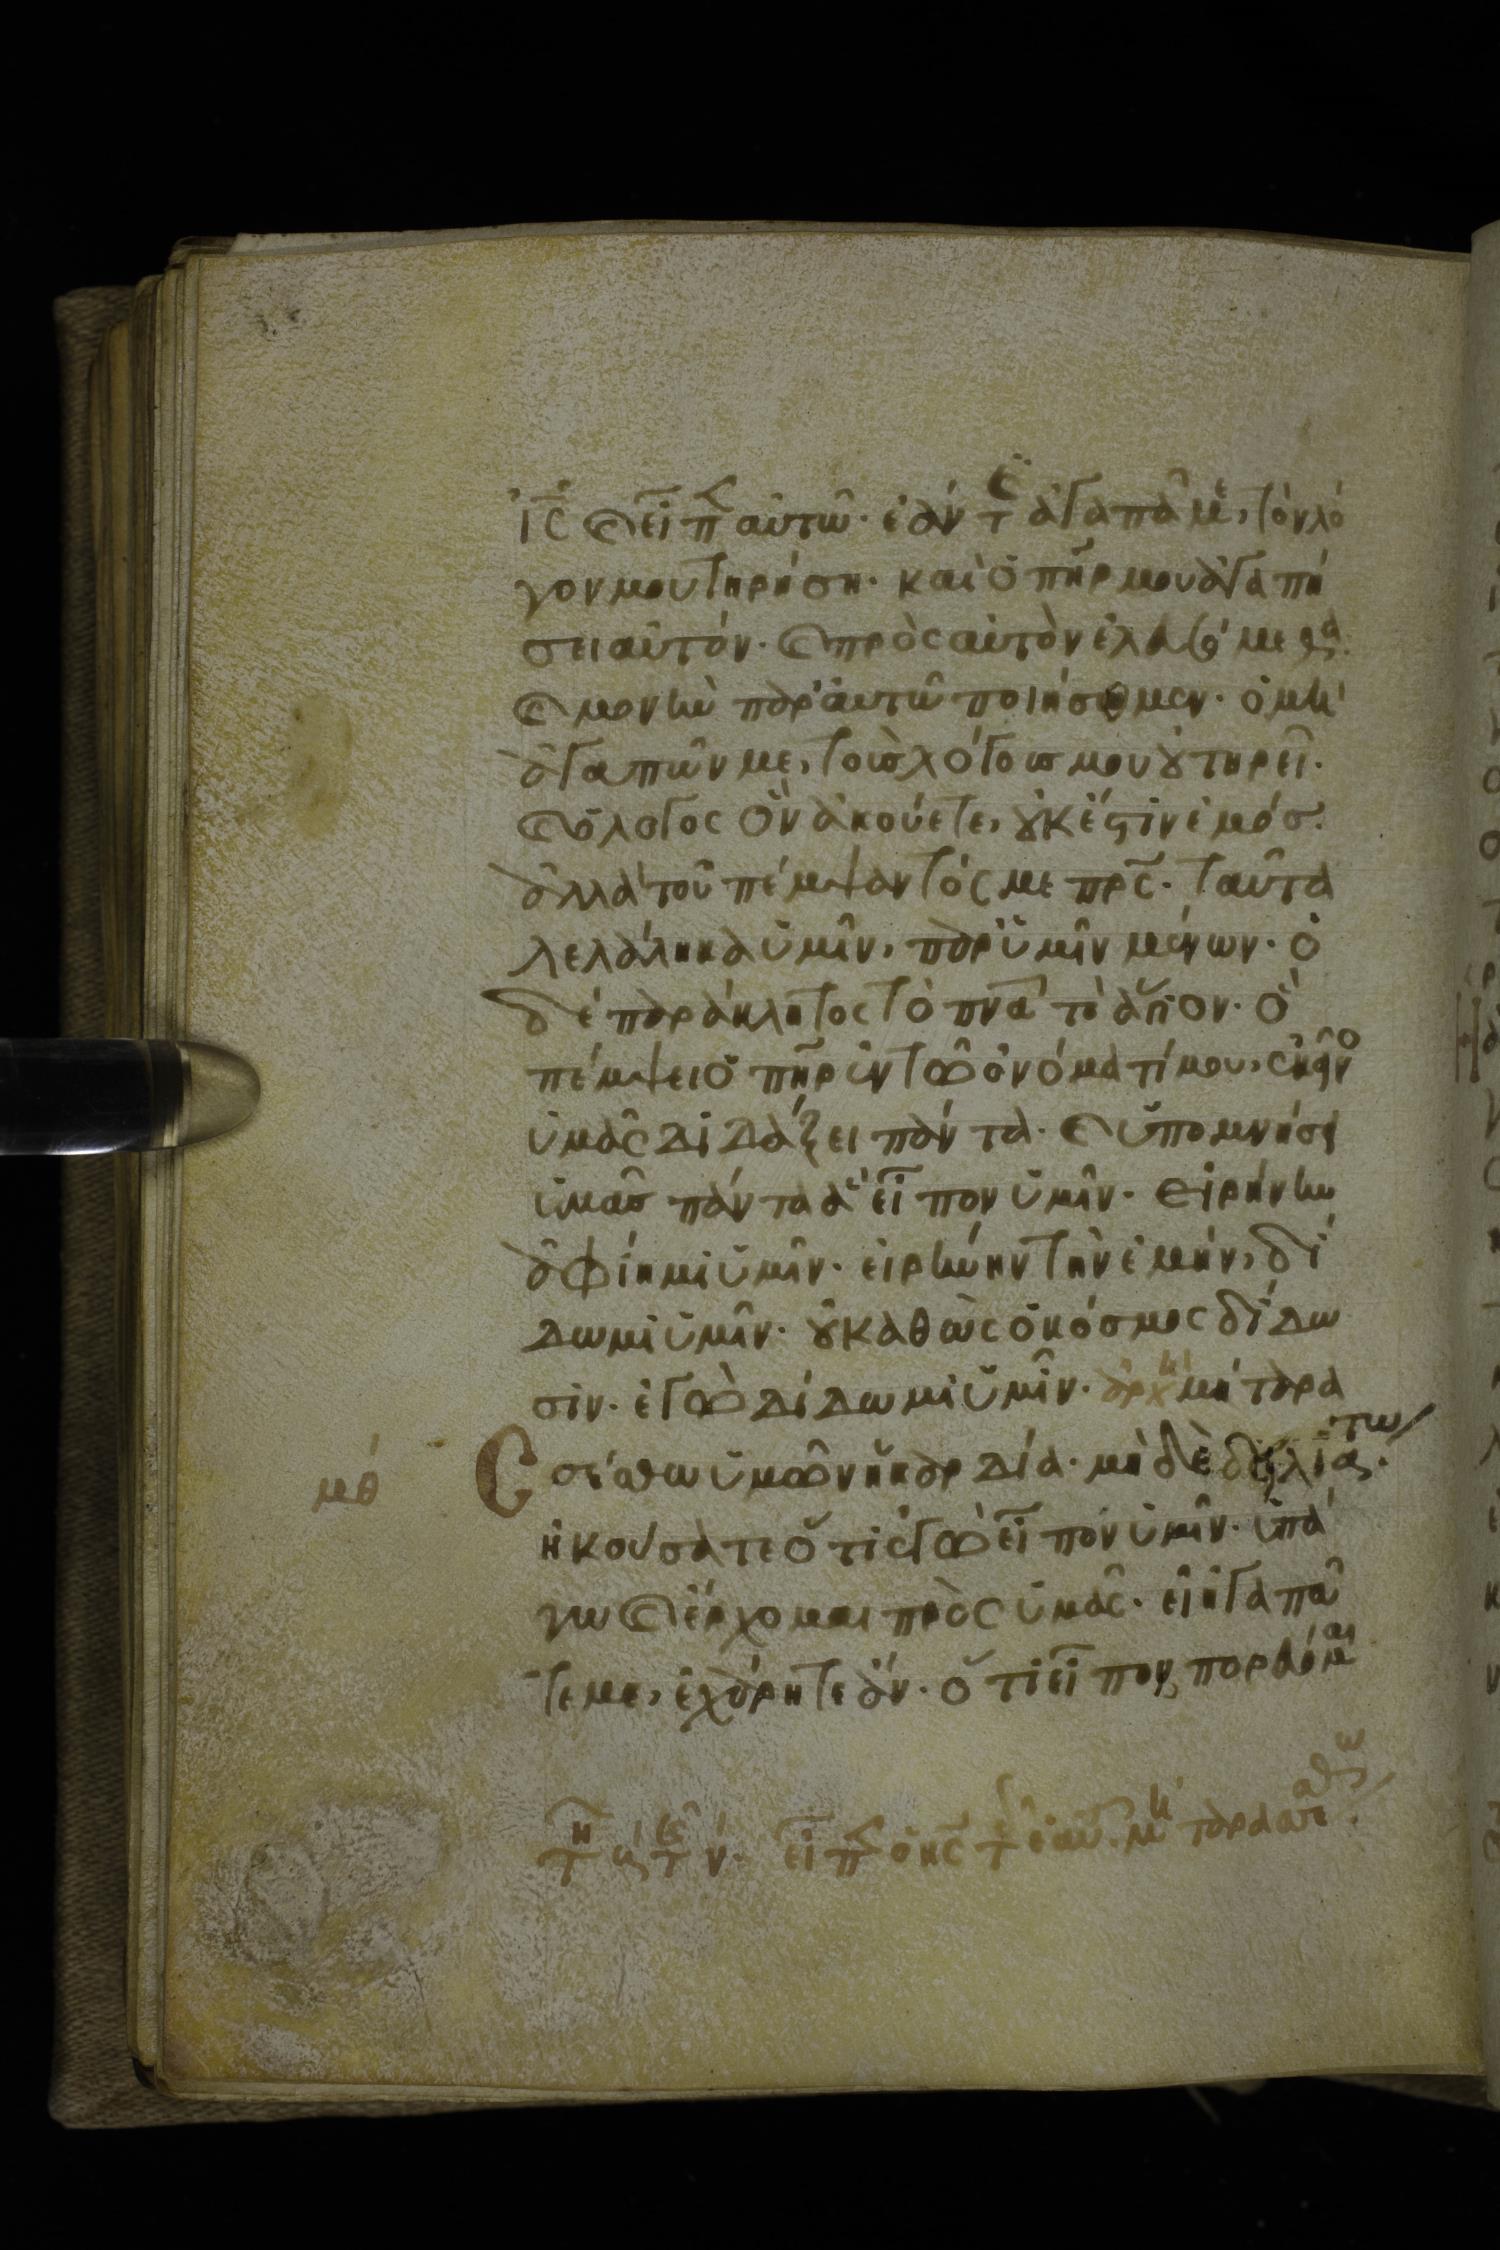 ἰς̅ κ̀ εἶπ̅ αὐτῶ· ἐάν τ̅ ἀγαπᾶ με, τὸν λό
γον μου τηρήση· καὶ ὁ πη̅ρ μου ἀγαπή
σει αὐτόν· κ̀ πρὸς αὐτὸν ἐλευσόμεθα·
κ̀ μονὴν παρ' αὐτῶ ποιήσομεν· ὁ μὴ
ἀγαπῶν με, τοὺς λόγους μου οὐ τηρεῖ·
κ̀ ὁ λόγος ὃν ἀκούετε, οὐκ ἔστιν ἐμός·
ἀλλὰ τοῦ πέμψαντός με πρς̅· ταῦτα
λελάληκα ὑμῖν, παρ' ὑμῖν μένων· ὁ
δὲ παράκλητος τὸ πνα̅ τὸ ἅγιον· ὃ
πέμψει ὁ πη̅ρ ἐν τῶ ὀνόματί μου, ἐκεῖνο
ὑμᾶς διδάξει πάντα· κ̀ ὑπομνήσει
ὑμᾶς πάντα ἃ εἶπον ὑμῖν· εἰρήνην
ἀφίημι ὑμῖν· εἰρήνην τὴν ἐμήν, δί
δωμι ὑμῖν· οὐ καθὼς ὁ κόσμος δίδω
σιν· ἐγὼ δίδωμι ὑμῖν· ἀρχ μὴ ταρα
σέσθω ὑμῶν ἡ καρδία· μηδὲ δειλιάτω·
μθ
ἠκούσατε ὅτι ἐγὼ εἶπον ὑμῖν· ὑπά
γω κ̀ ἔρχομαι πρὸς ὑμᾶς· εἰ ἠγαπᾶ
τε με, ἐχάρητε ἄν· ὅτι εἶπον πορεύομαι
εἶπ̅ ὁ κς̅ τ̅ ἑαυ̅· μὴ ταρασ